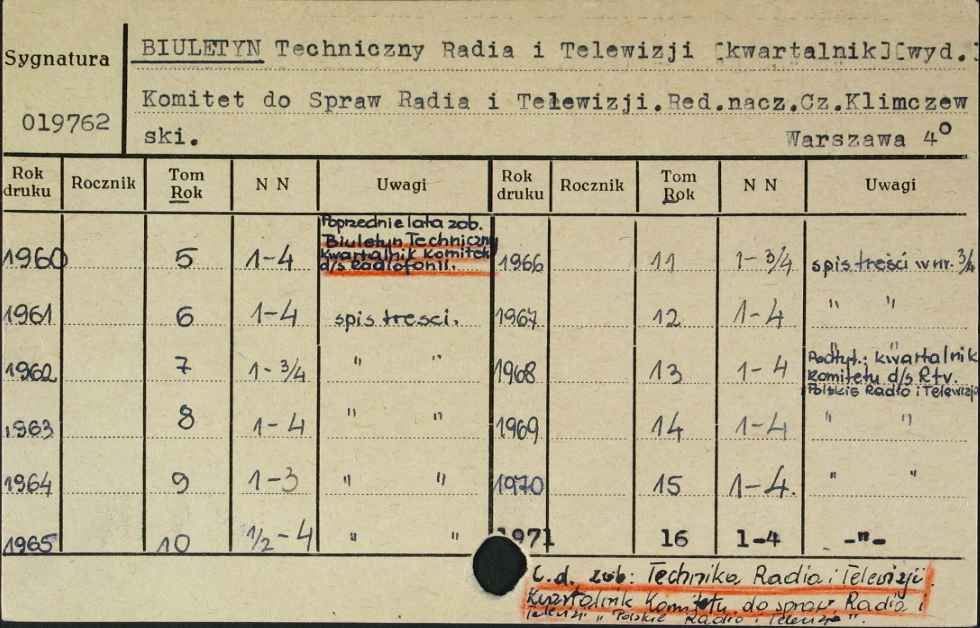 Sygnatura
019762
BIULETYN Techniczny Radia i Telewizji [kwartalnik][wyd.:
Komitet do Spraw Radia i Telewizji.Red.nacz.Cz.Klimczew
ski. Warszawa 4°
Rok druku Rocznik Tom Rok N N Uwagi Rok druku Rocznik Tom Rok N N Uwagi
Poprzednie lata zob.
Biuletyn Techniczny
Kwartalnik Komitetu
d/s Radiofonii.
1960 5 1-4 1966 11 1-3/4 spis treści w nr. 3/4
1961 6 1-4 spis tresci. 1967 12 1-4 " "
1962 7 1-3/4 " " 1968 13 1-4 " "
Podtyt.: kwartalnik
Komitetu d/s RTV.
Polskie Radio i Telewizja
1963 8 1-4 " " 1969 14 1-4 " "
1964 9 1-3 " " 1970 15 1-4. " "
1965 10 1/2-4 " " 1971 16 1-4 -"-
C.d. zob: Technika Radia i Telewizji.
Kwartalnik Komitetu do spraw Radia i
Telewizji "Polskie Radio i Telewizja".